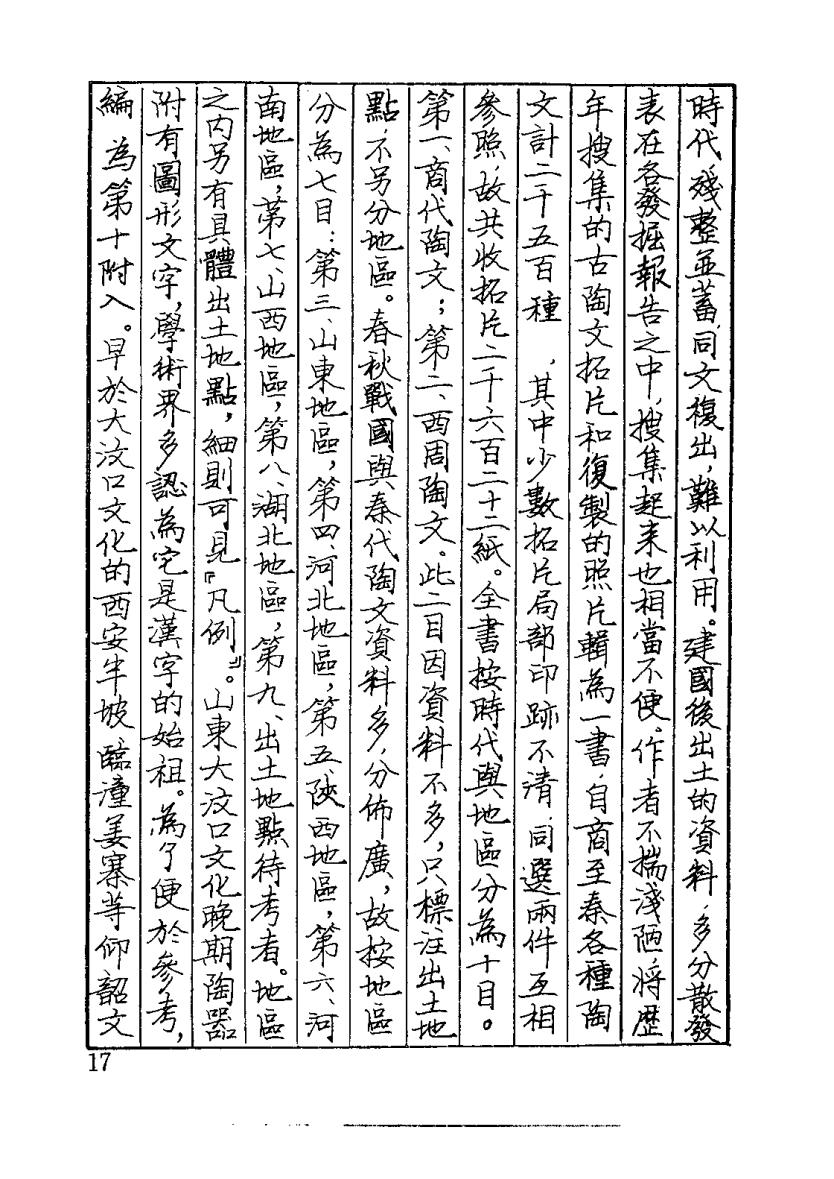 時代，殘整並蓄，同文復出，難以利用。建國後出土的資料，多分散發
表在各發掘報告之中，搜集起來也相當不便。作者不揣淺陋，將歷
年搜集的古陶文拓片和復製的照片輯為一書，自商至秦各種陶
文計二千五百種　，其中少數拓片局部印跡不清，同選兩件互相
參照，故共收拓片二千六百二十二紙。全書按時代與地區分為十目。
第一、商代陶文；第二、西周陶文。此二目因資料不多，只標注出土地
點，不另分地區。春秋戰國與秦代陶文資料多，分佈廣，故按地區
分為七目：第三、山東地區，第四、河北地區，第五、陝西地區，第六、河
南地區，第七、山西地區，第八、湖北地區，第九、出土地點待考者。地區
之内另有具體出土地點，細則可見『凡例』。山東大汶口文化晚期陶器
附有圖形文字，學術界多認為它是漢字的始祖。為了便於參考，
編　為第十附入。早於大汶口文化的西安半坡、臨潼姜寨等仰韶文
17